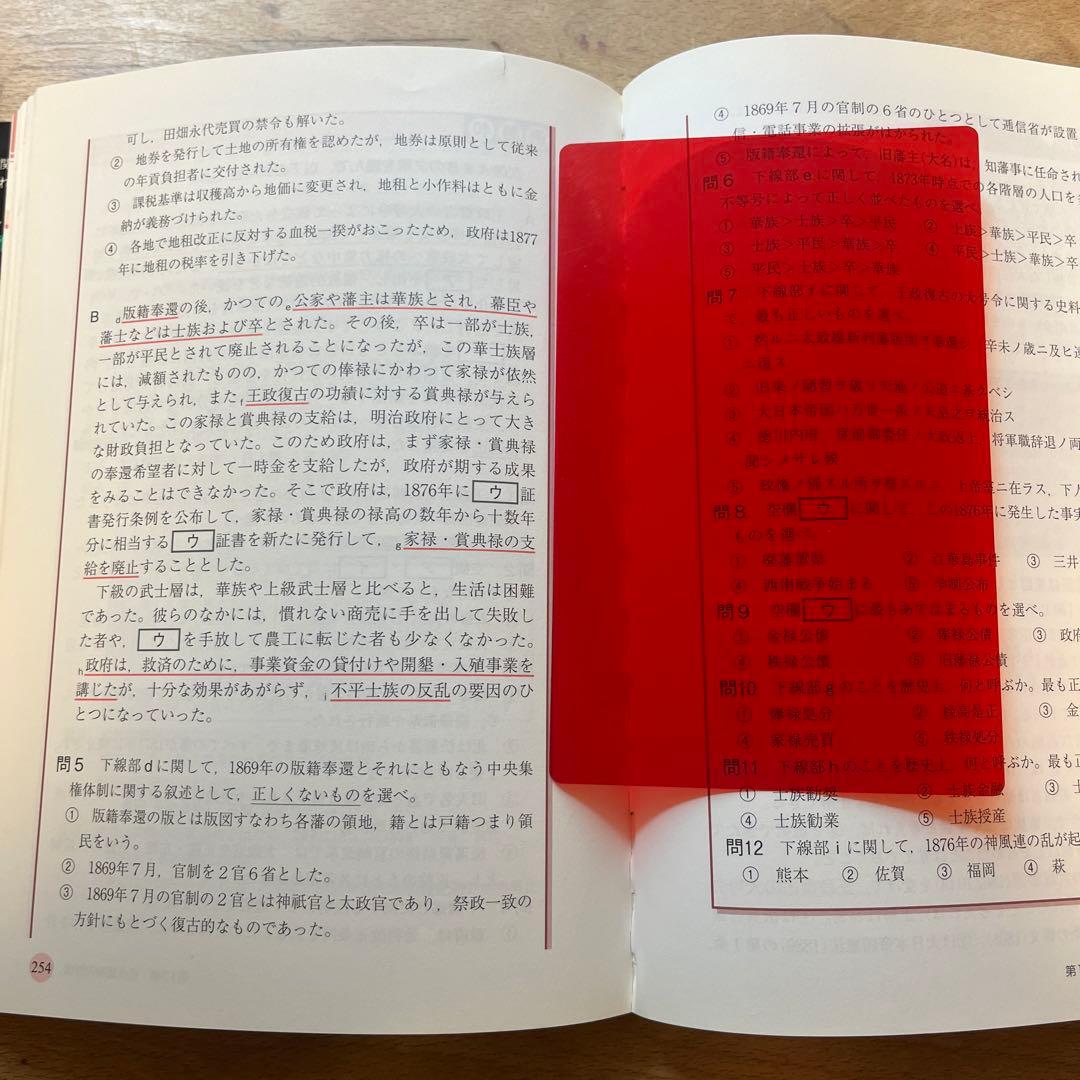 可し，田畑永代売買の禁令も解いた。
② 地券を発行して土地の所有権を認めたが，地券は原則として従来
の年貢負担者に交付された。
③ 課税基準は収穫高から地価に変更され，地租と小作料はともに金
納が義務づけられた。
④ 各地で地租改正に反対する血税一揆がおこったため，政府は1877
年に地租の税率を引き下げた。
B d版籍奉還の後，かつてのe公家や藩主は華族とされ，幕臣や
藩士などは士族および卒とされた。その後，卒は一部が士族，
一部が平民とされて廃止されることになったが，この華士族層
には，減額されたものの，かつての俸禄にかわって家禄が依然
として与えられ，またf王政復古の功績に対する賞典禄が与えら
れていた。この家禄と賞典禄の支給は，明治政府にとって大き
な財政負担となっていた。このため政府は，まず家禄・賞典禄
の奉還希望者に対して一時金を支給したが，政府が期する成果
をみることはできなかった。そこで政府は，1876年に ウ 証
書発行条例を公布して，家禄・賞典禄の禄高の数年から十数年
分に相当する ウ 証書を新たに発行して，g家禄・賞典禄の支
給を廃止することとした。
下級の武士層は，華族や上級武士層と比べると，生活は困難
であった。彼らのなかには，慣れない商売に手を出して失敗し
た者や， ウ を手放して農工に転じた者も少なくなかった。
h政府は，救済のために，事業資金の貸付けや開墾・入殖事業を
講じたが，十分な効果があがらず，i不平士族の反乱の要因のひ
とつになっていった。
問5 下線部dに関して，1869年の版籍奉還とそれにともなう中央集
権体制に関する叙述として，正しくないものを選べ。
① 版籍奉還の版とは版図すなわち各藩の領地，籍とは戸籍つまり領
民をいう。
② 1869年7月，官制を2官6省とした。
③ 1869年7月の官制の2官とは神祇官と太政官であり，祭政一致の
方針にもとづく復古的なものであった。
254
④ 1869年7月の官制の6省のひとつとして通信省が設置
信・電話事業の拡張がはかられた。
⑤ 版籍奉還によって，旧藩主(大名)は，知藩事に任命され
問6 下線部eに関して，1873年時点での各階層の人口を
不等号によって正しく並べたものを選べ。
① 華族＞士族＞卒＞平民 ② 士族＞華族＞平民＞卒
③ 士族＞平民＞華族＞卒 ④ 平民＞士族＞華族＞卒
⑤ 平民＞士族＞卒＞華族
問7 下線部fに関して，王政復古の大号令に関する史料
で，最も正しいものを選べ。
① 辛未ノ歳ニ及ヒ
ニ復ス
② 旧来ノ陋習ヲ破リ天地ノ公道ニ基クベシ
③ 大日本帝国ハ万世一系ノ天皇之ヲ統治ス
④ 徳川内府，従前御委任ノ大政返上，将軍職辞退ノ両
聞シメサレ候
⑤ 上帝室ニ在ラス，下
問8 空欄 ウ に関して，この1876年に発生した事実
ものを選べ。
① 廃藩置県 ② 江華島事件 ③ 三井
④ 西南戦争始まる ⑤ 公布
問9 空欄 ウ に最もあてはまるものを選べ。
① 金禄公債 ② 俸禄公債 ③ 政府
④ 秩禄公債 ⑤ 旧藩禄公債
問10 下線部gのことを歴史上，何と呼ぶか。最も正
① 俸禄処分 ② 禄高是正 ③ 金
④ 家禄売買 ⑤ 秩禄処分
問11 下線部hのことを歴史上，何と呼ぶか。最も正
① 士族勧奨 ② 士族金融 ③ 士
④ 士族勧業 ⑤ 士族授産
問12 下線部iに関して，1876年の神風連の乱が起
① 熊本 ② 佐賀 ③ 福岡 ④ 萩
第